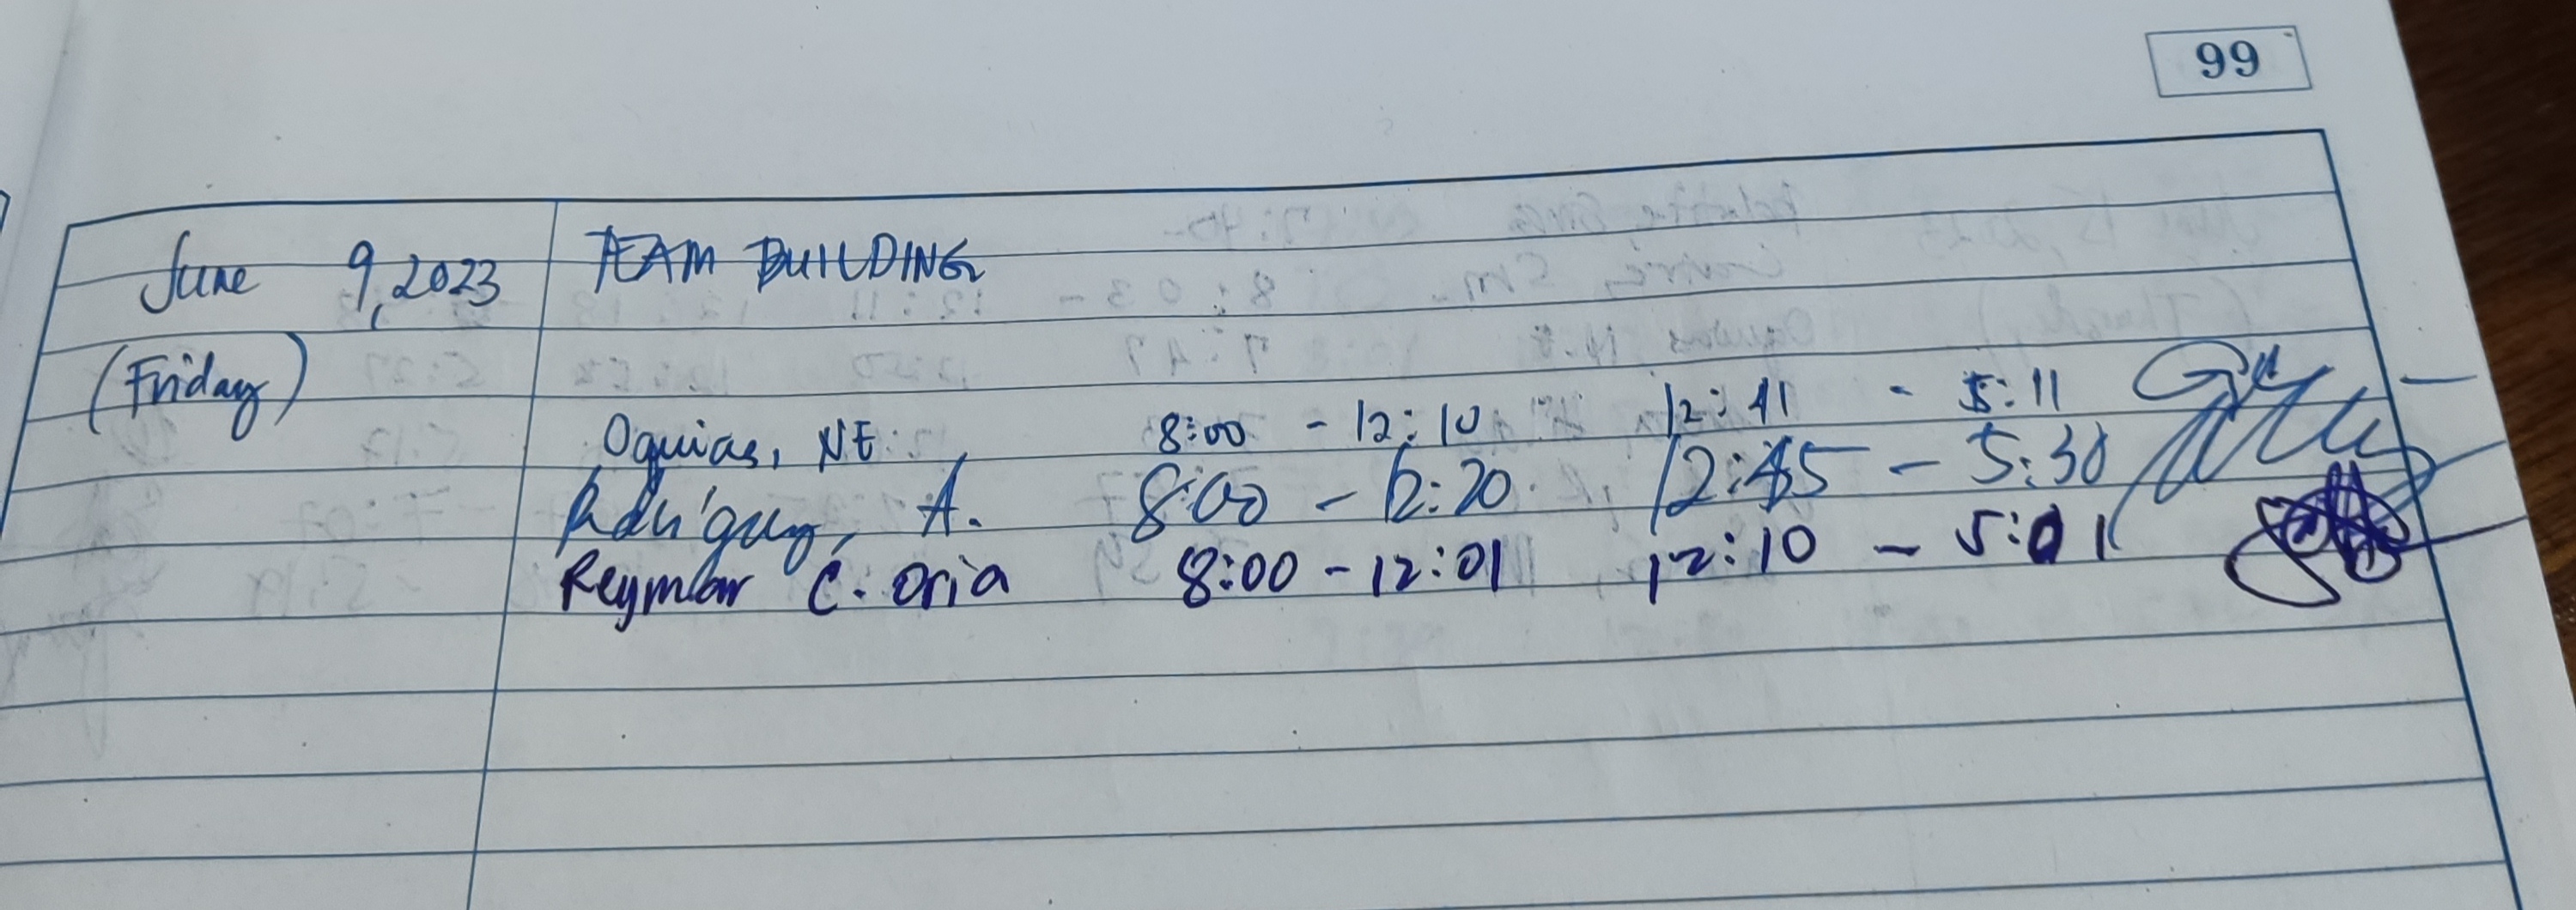 99
June 9, 2023 TEAM BUILDING
(Friday)
Oquias, NE 8:00 - 12:10 12:41 - 5:11
A. 8:00 - 12:20 12:45 - 5:30
Reymar C. Oria 8:00 - 12:01 12:10 - 5:01